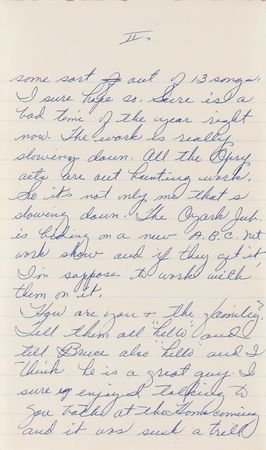 II.
some sort of out of 13 songs.
I sure hope so. Here is a
bad time of the year right
now. The work is really
slowing down. All the Opry
acts are out hunting work.
So it's not only me that's
slowing down. The Ozark Jub.
is biding on a new A.B.C. net
work show and if they get it
I'm suppose to work with
them on it.
How are you + the family?
Tell them all "hello" and
tell Bruce also "hello" and I
think he is a great guy. I
sure enjoyed talking to
you both at the Homecoming
and it was such a trill